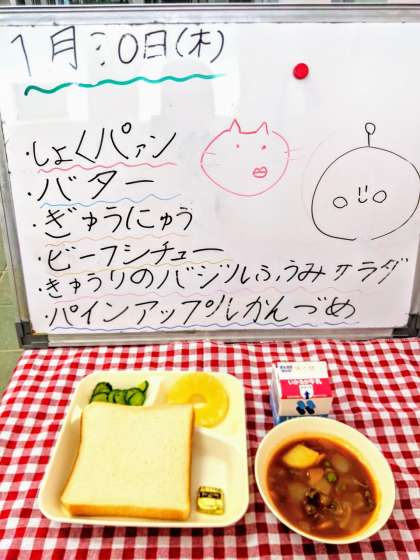 1月30日(木)
・しょくパァン
・バター
・ぎゅうにゅう
・ビーフシチュー
・きゅうりのバジルふうみサラダ
・パインアップルかんづめ